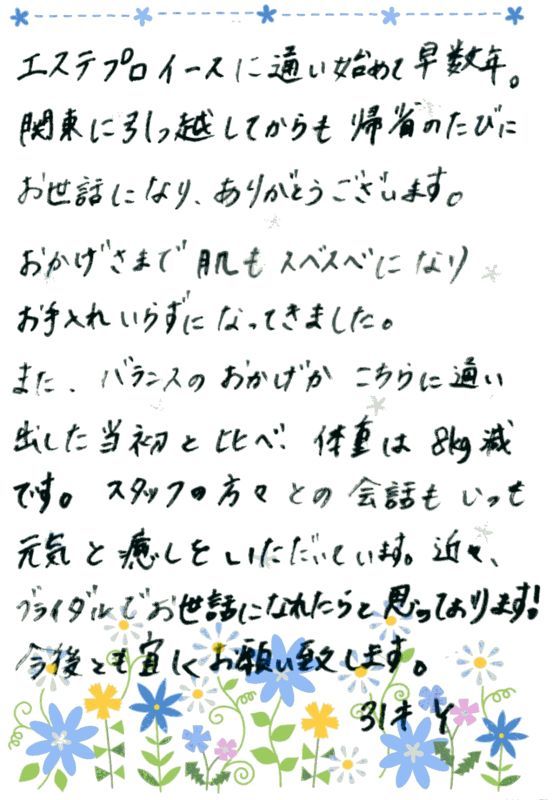 エステプロイースに通い始めて早数年。
関東に引っ越してからも帰省のたびに
お世話になり、ありがとうございます。
おかげさまで肌もスベスベになり
お手入れいらずになってきました。
また、バランスのおかげかこちらに通い
出した当初と比べ、体重は8kg減
です。スタッフの方々との会話もいつも
元気と癒しをいただいています。近々、
ブライダルでお世話になれたらと思っております!
今後とも宜しくお願い致します。
31才 Y